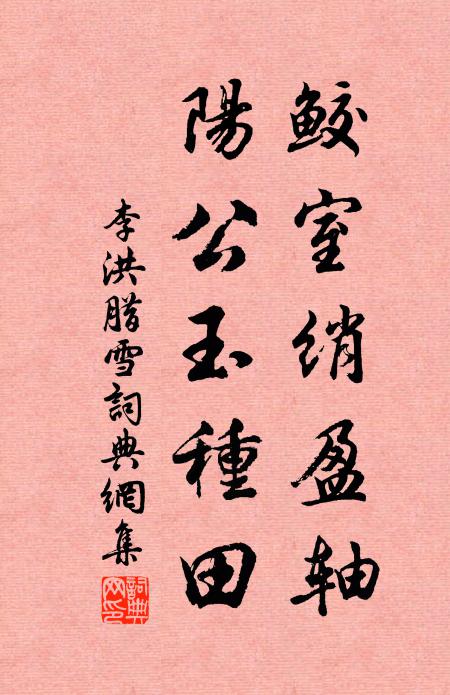 鮫室綃盈軸
陽公玉種田
李洪腊雪詞典網集
詞典網印